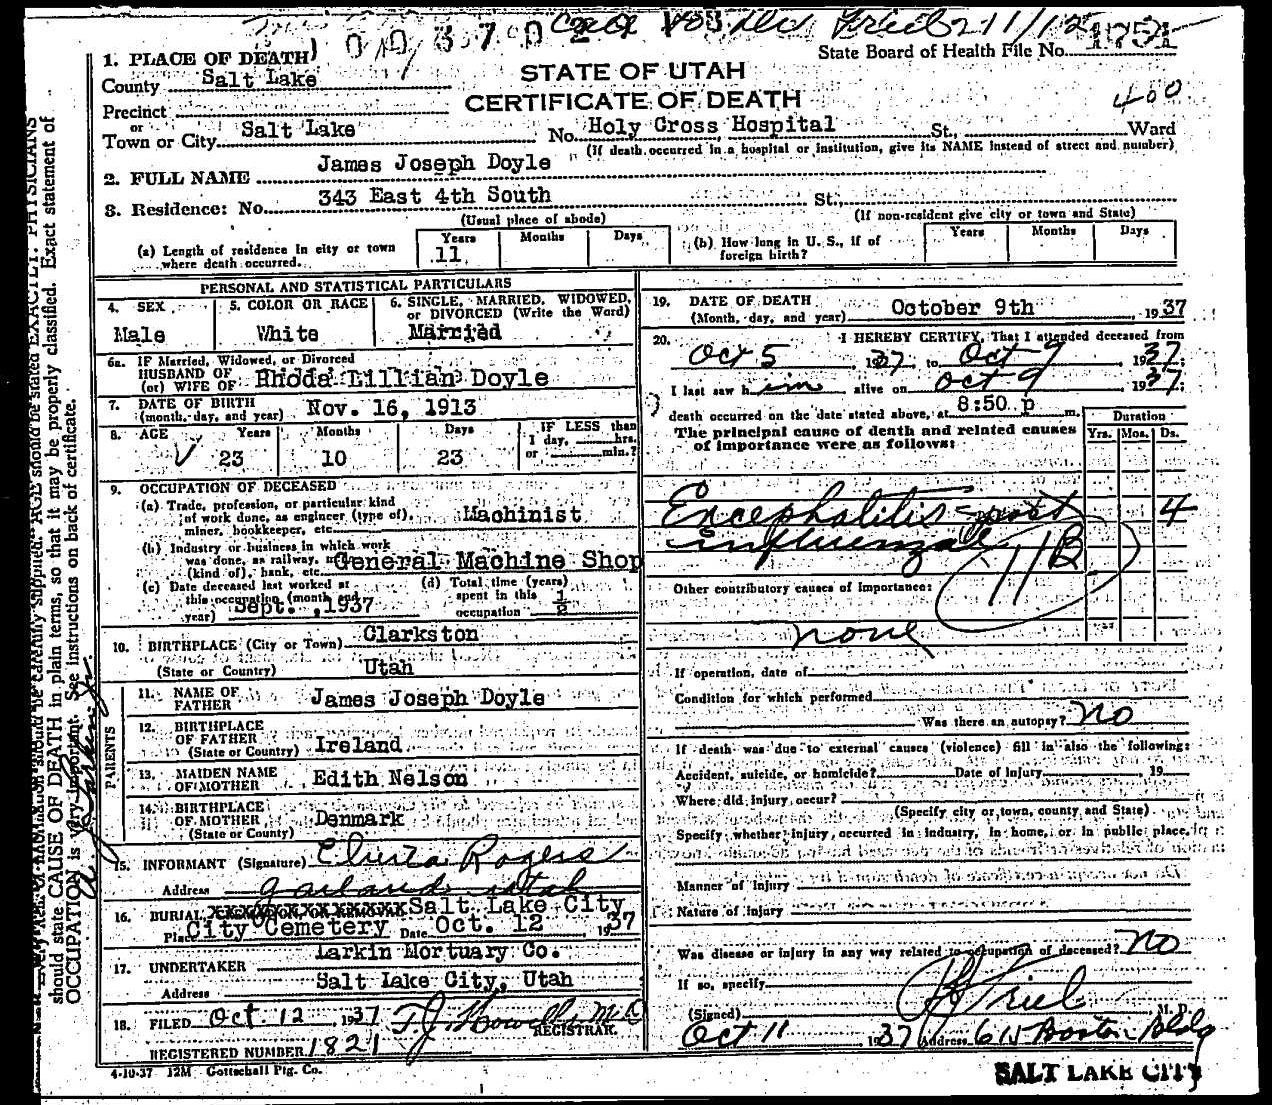 003702
State Board of Health File No. 1751
1. PLACE OF DEATH
STATE OF UTAH
County Salt Lake
CERTIFICATE OF DEATH
400
Precinct
or
Town or City Salt Lake No. Holy Cross Hospital St., Ward
(If death occurred in a hospital or institution, give its NAME instead of street and number)
2. FULL NAME James Joseph Doyle
3. Residence: No. 343 East 4th South St.,
(Usual place of abode) (If non-resident give city or town and State)
(a) Length of residence in city or town where death occurred. Years 11 Months Days
(b) How long in U. S., if of foreign birth? Years Months Days
PERSONAL AND STATISTICAL PARTICULARS
4. SEX Male
5. COLOR OR RACE White
6. SINGLE, MARRIED, WIDOWED, or DIVORCED (Write the Word) Married
6a. IF Married, Widowed, or Divorced
HUSBAND OF
(or) WIFE OF Rhoda Lillian Doyle
7. DATE OF BIRTH
(month, day, and year) Nov. 16, 1913
8. AGE Years 23 Months 10 Days 23
IF LESS than
1 day, hrs.
or min.?
9. OCCUPATION OF DECEASED
(a) Trade, profession, or particular kind
of work done, as engineer (type of),
miner, bookkeeper, etc. Machinist
(b) Industry or business in which work
was done, as railway,
(kind of), bank, etc. General Machine Shop
(c) Date deceased last worked at
this occupation (month and
year) Sept. ,1937
(d) Total time (years)
spent in this
occupation 1/2
10. BIRTHPLACE (City or Town) Clarkston
(State or Country) Utah
PARENTS
11. NAME OF FATHER James Joseph Doyle
12. BIRTHPLACE OF FATHER
(State or Country) Ireland
13. MAIDEN NAME OF MOTHER Edith Nelson
14. BIRTHPLACE OF MOTHER
(State or County) Denmark
15. INFORMANT (Signature) Rogers
Address Garland Utah
16. BURIAL, CREMATION, OR REMOVAL Salt Lake City
Place City Cemetery Date Oct. 12 1937
17. UNDERTAKER Larkin Mortuary Co.
Address Salt Lake City, Utah
18. FILED Oct 12 1937 REGISTRAR.
REGISTERED NUMBER 1821
4-10-37 12M Gottschall Ptg. Co.
19. DATE OF DEATH
(Month, day, and year) October 9th 1937
20. I HEREBY CERTIFY, That I attended deceased from
Oct 5, 1937, to Oct 9 1937;
I last saw him alive on Oct 9 1937;
death occurred on the date stated above, at 8:50 p m.
The principal cause of death and related causes
of importance were as follows:
Duration
Yrs. Mos. Ds.
Encephalitis - post 4
influenzal
11B
Other contributory causes of importance:
none
If operation, date of
Condition for which performed
Was there an autopsy? No
If death was due to external causes (violence) fill in also the following:
Accident, suicide, or homicide? Date of injury , 19
Where did injury occur?
(Specify city or town, county and State)
Specify whether injury occurred in industry, in home, or in public place.
Manner of injury
Nature of injury
Was disease or injury in any way related to occupation of deceased? No
If so, specify
(Signed) M. D.
Oct 11, 1937 Address 615 Boston Bldg
SALT LAKE CITY
should state CAUSE OF DEATH in plain terms, so that it may be properly classified. Exact statement of
OCCUPATION is very important. See instructions on back of certificate.